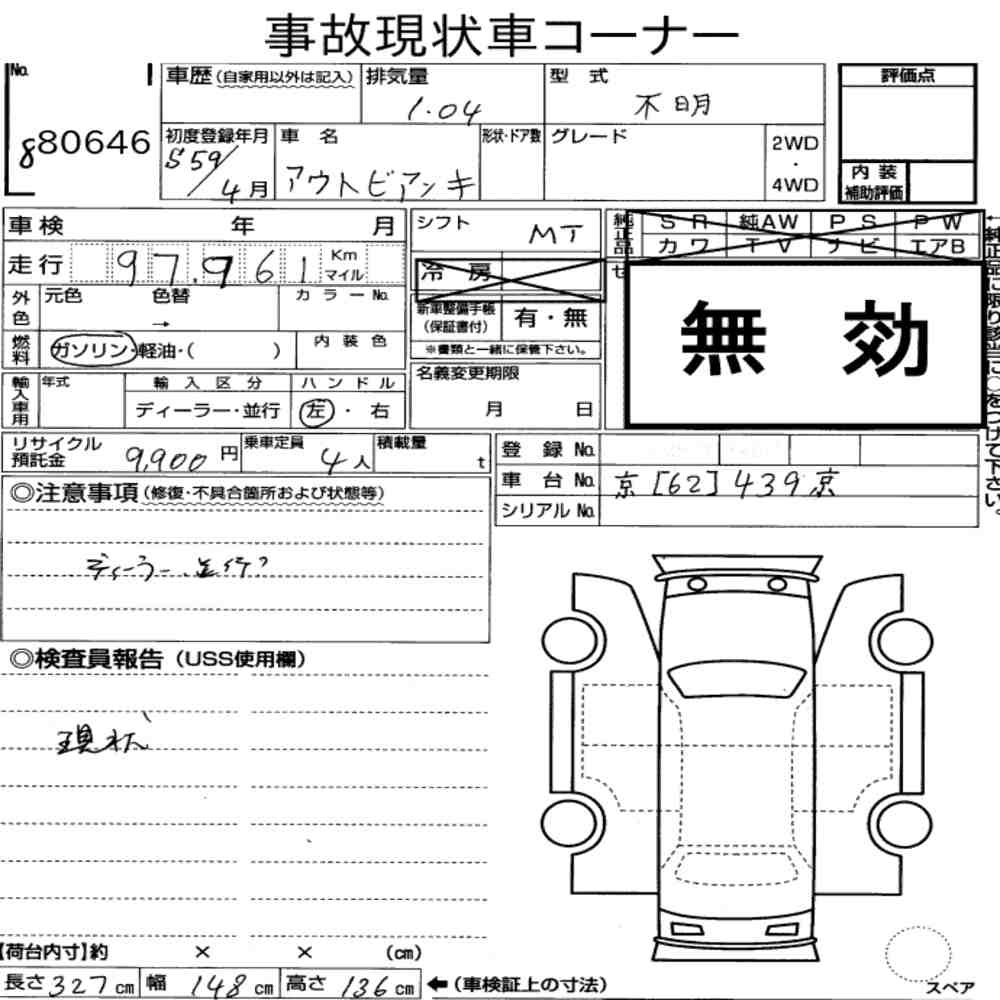 事故現状車コーナー
No. 880646
車歴(自家用以外は記入) 排気量 1.04 型式 不明 評価点
初度登録年月 S59/4月 車名 アウトビアンキ 形状・ドア数 グレード 2WD・4WD
内装補助評価
車検 年 月 シフト MT 純正品 SR 純AW PS PW
カワ TV ナビ エアB
走行 97,961 Km マイル 冷房 セ
外色 元色 色替 → カラーNo. 新車整備手帳(保証書付) 有・無
無効
純正品に限り該当に○をつけて下さい。
燃料 ガソリン・軽油・( ) 内装色 ※書類と一緒に保管下さい。
輸入車用 年式 輸入区分 ハンドル 名義変更期限
ディーラー・並行 左・右 月 日
リサイクル預託金 9,900円 乗車定員 4人 積載量 t 登録No.
車台No. 京[62]439京
シリアルNo.
◎注意事項(修復・不具合箇所および状態等)
ディーラー、並行?
◎検査員報告(USS使用欄)
現状
【荷台内寸】約 × × (cm)
長さ327cm 幅148cm 高さ136cm ←(車検証上の寸法) スペア